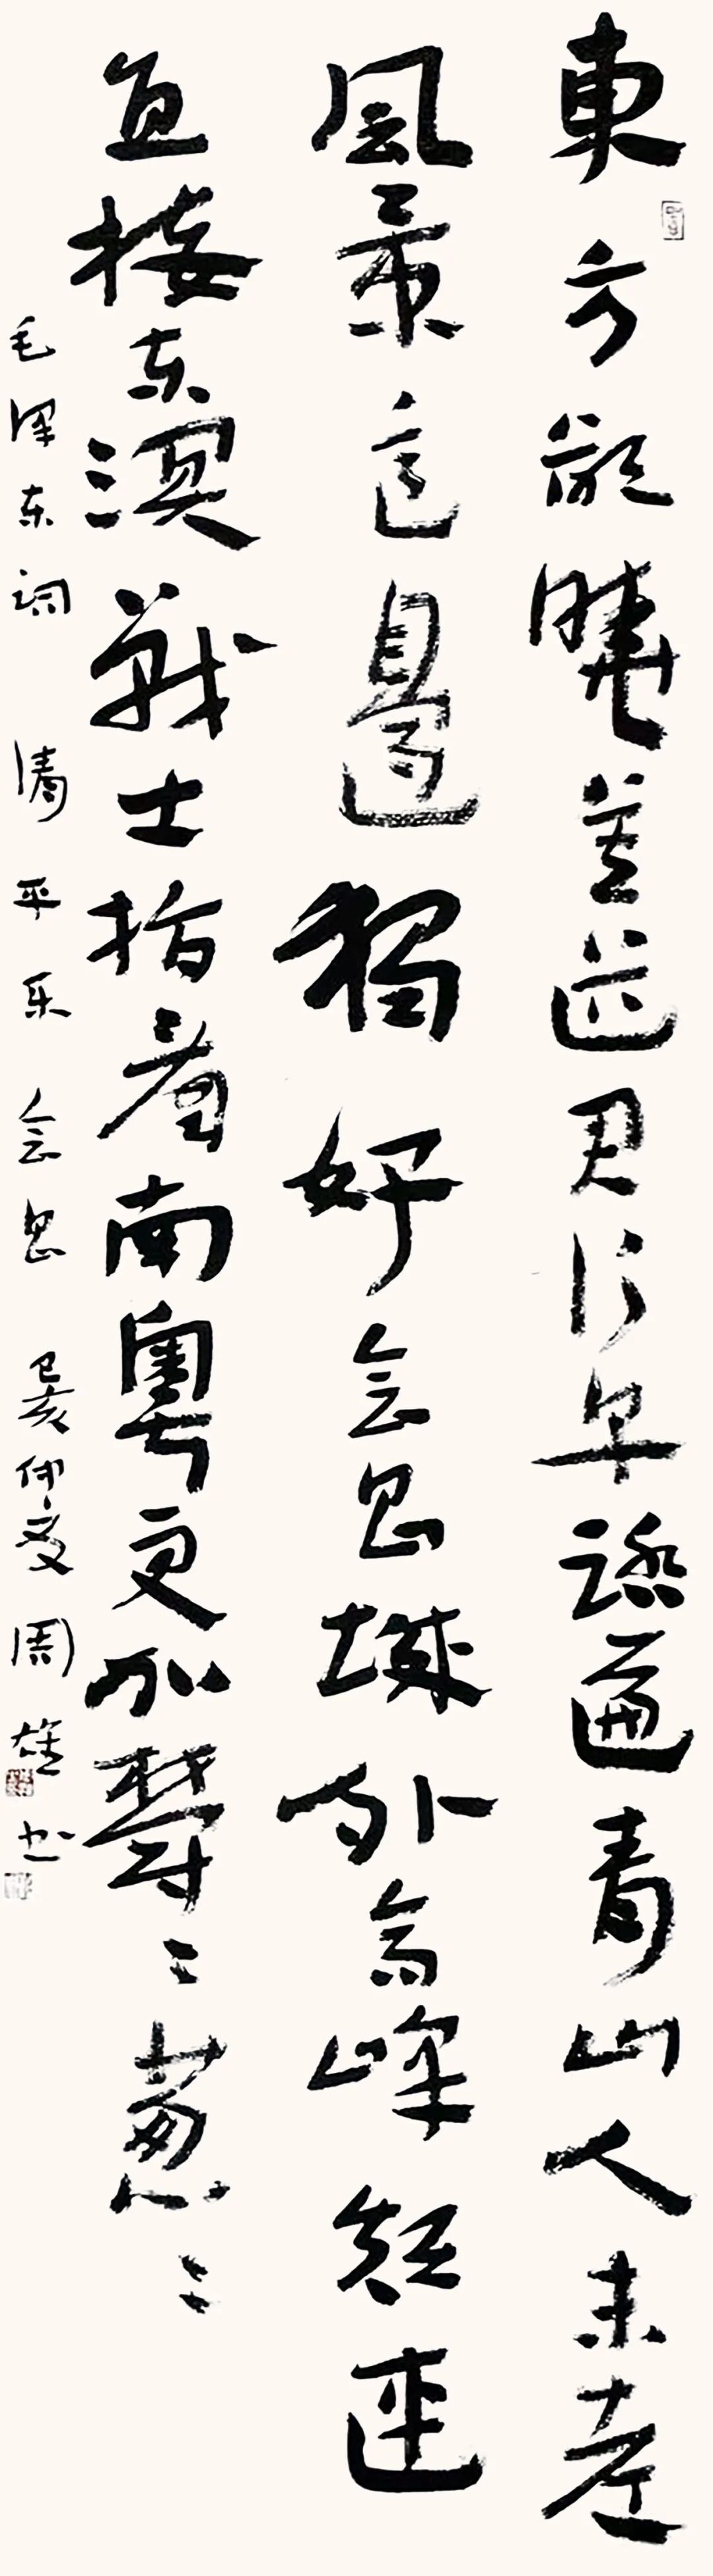 東方欲曉莫道君行早踏遍青山人未老
風景這邊獨好会昌城外高峰顛連
直接东溟戰士指看南粵更加鬱〻葱〻
毛泽东词 清平乐 会昌 己亥仲夏 周雄书